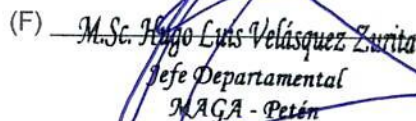 (F) M.Sc. Hugo Luis Velásquez Zurita
Jefe Departamental
MAGA - Petén